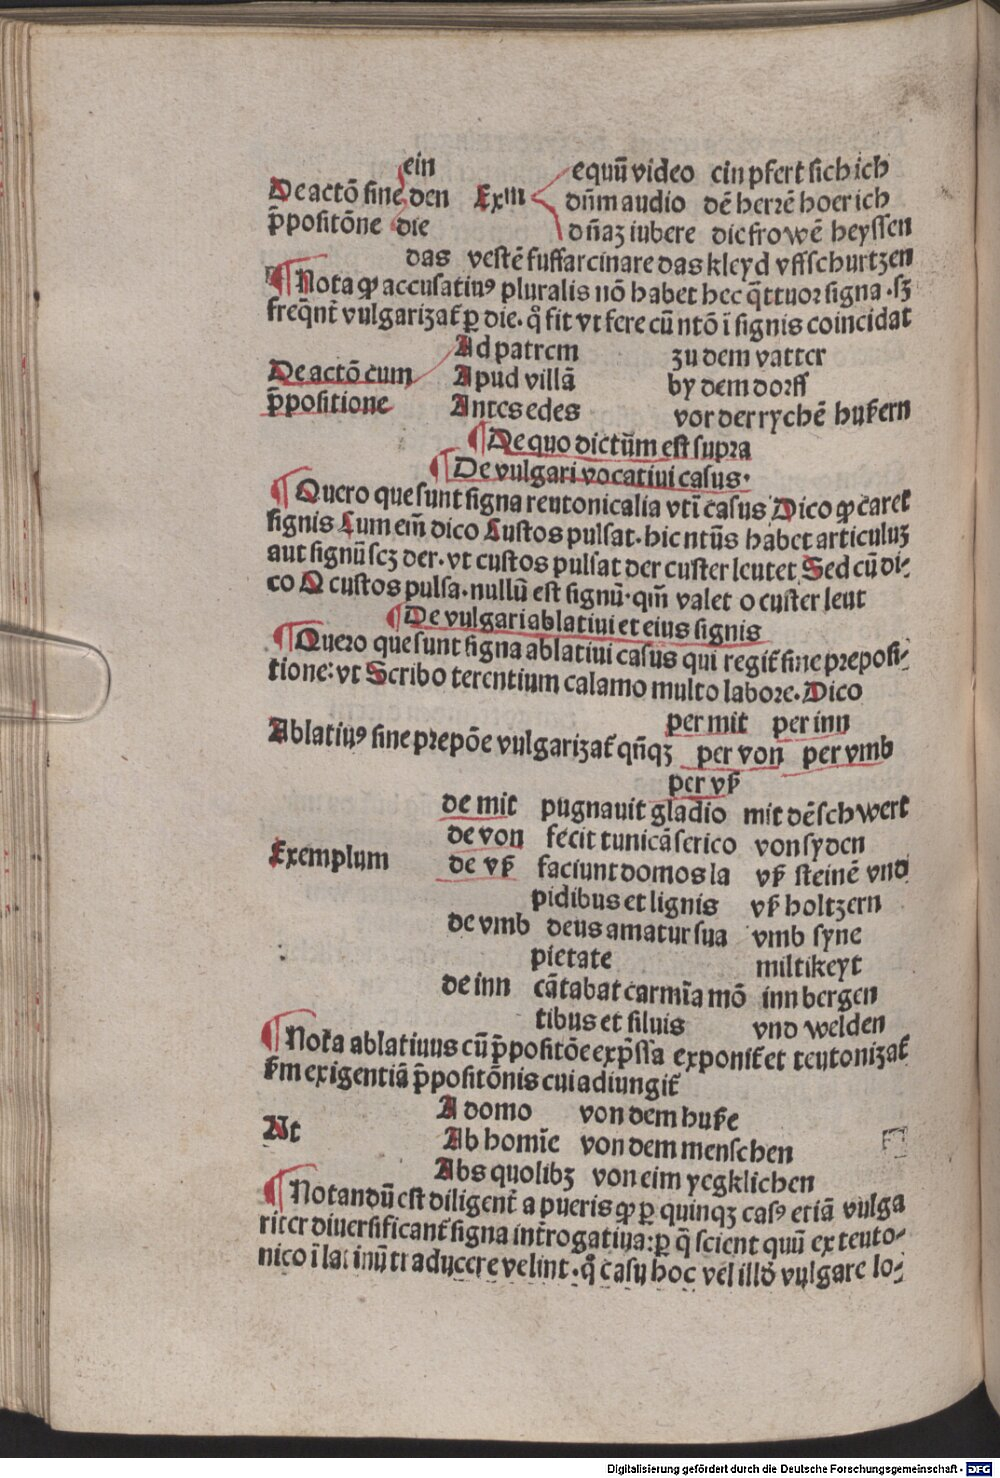 ein equū video ein pfert sich ich
De actō sine den Exm dn̄m audio dē herrē hoer ich
p̄positōne die dn̄aꝫ iubere die frowē heyssen
das vestē suffarcinare das kleyd vffschurtzen
¶ Nota ꝙ accusatiuꝰ pluralis nō habet hec q̄ttuor signa · sꝫ
freq̄nt̄ vulgarizat̄ ꝑ die. q̄ fit vt fere cū ntō ī signis coincidat
Ad patrem zu dem vatter
De actō cum Apud villā by dem dorff
p̄positione Antes edes vor der rychē huẞern
¶ De quo dictūm est supra
¶ De vulgari vocatiui casus·
¶ Quero que sunt signa teutonicalia vtī casus Dico ꝙ caret
signis Cum em̄ dico Custos pulsat. hic ntūs habet articuluꝫ
aut signū scꝫ der. vt custos pulsat der custer leutet Sed cū di⸗
co O custos pulsa. nullū est signū· qm̄ valet o custer leut
¶ De vulgari ablatiui et eius signis
¶ Quero que sunt signa ablatiui casus qui regit̄ sine preposi⸗
tione: vt Scribo terentium calamo multo labore. Dico
per mit per inn
Ablatiuꝰ sine prepōe vulgarizat̄ qn̄qꝫ per von per vmb
per vß
de mit pugnauit gladio mit dē schwert
de von fecit tunicā serico von syden
Exemplum de vß faciunt domos la vß steinē vnd
pidibus et lignis vß holtzern
de vmb deus amatur sua vmb syne
pietate miltikeyt
de inn cātabat carmīa mō inn bergen
tibus et siluis vnd welden
¶ Nota ablatiuus cū p̄positōe exp̄ssa exponit̄ et teutonizat̄
ẞm exigentiā p̄positōnis cui adiungit̄
A domo von dem huße
Vt Ab homīe von dem menschen
Abs quolibꝫ von eim yegklichen
¶ Notandū est diligent̄ a pueris ꝙ ꝑ quinqꝫ casꝰ etiā vulga
riter diuersificant̄ signa int̄rogatiua: ꝑ q̄ scient quū ex teuto⸗
nico ī latinū traducere velint. q̊ casu hoc vel illd̄ vulgare lo⸗
Digitalisierung gefördert durch die Deutsche Forschungsgemeinschaft - DFG